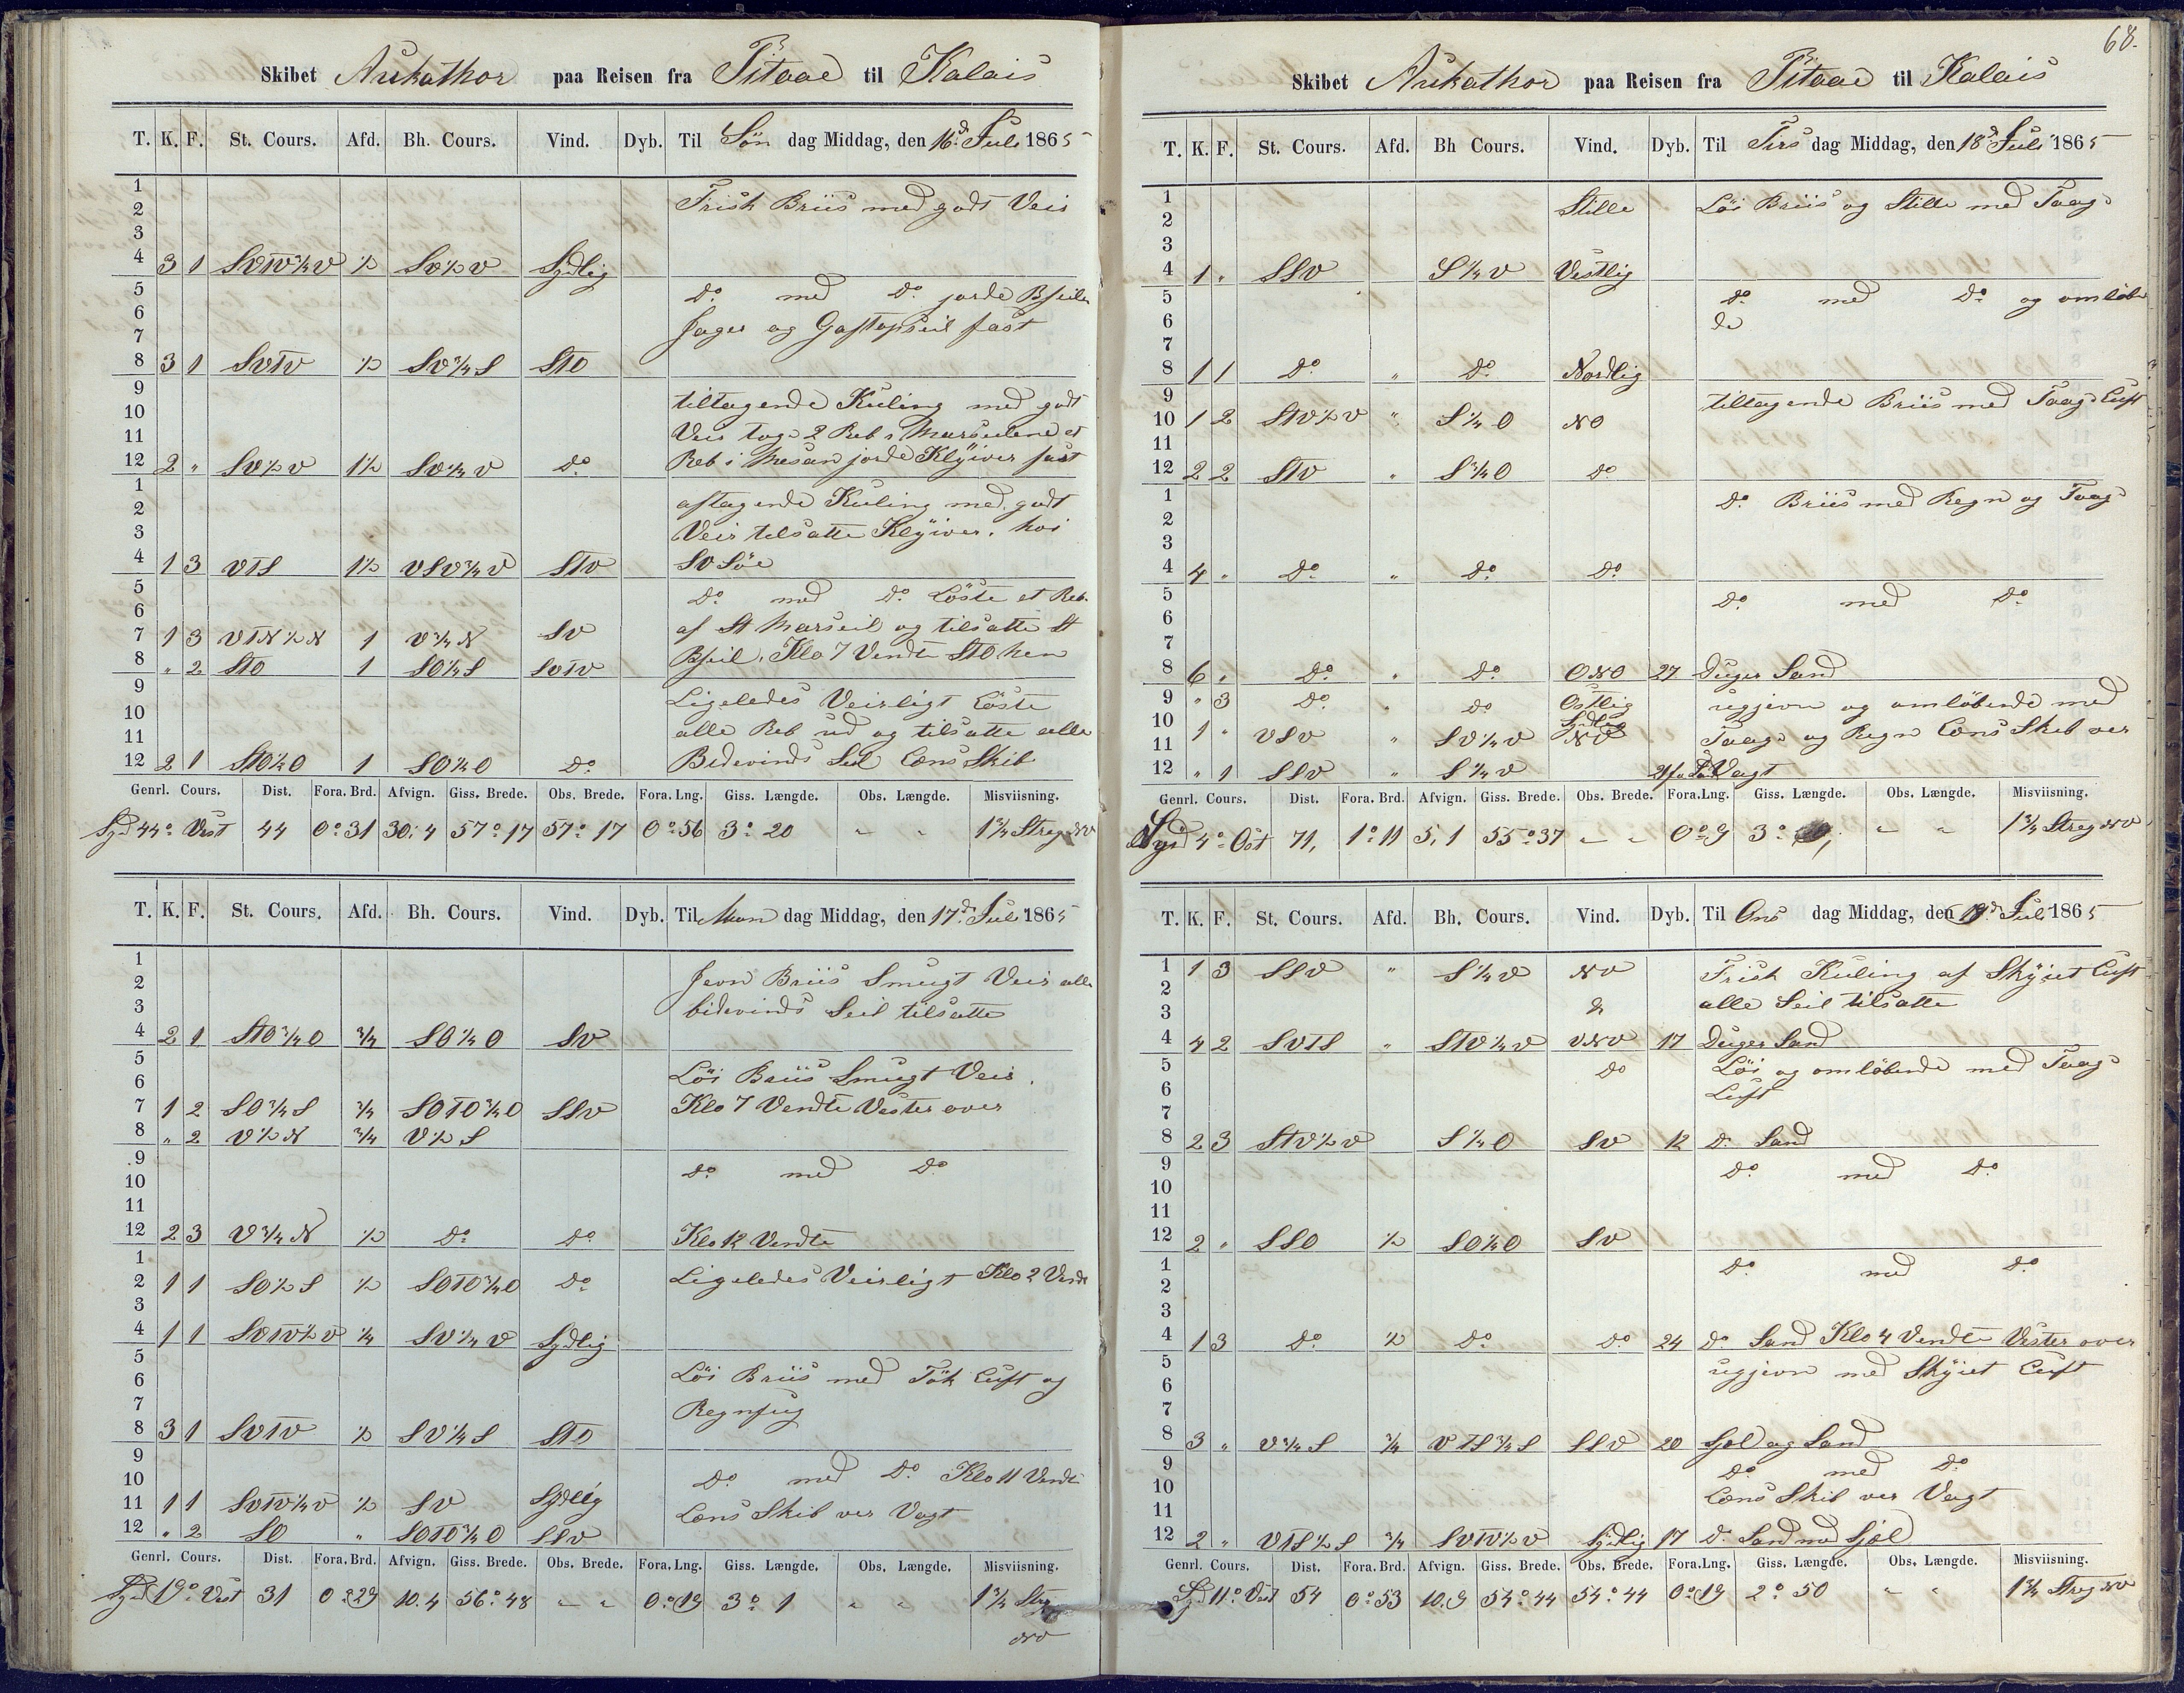 Skibet Aukathor paa Reisen fra Titaae til Kalais
T. K. F. St. Cours. Afd. Bh. Cours. Vind. Dyb. Til Søn dag Middag, den 16d. Juli 1865
1
2 Frisk Briis med godt Veir
3
4 3 1 SVTV¾V ½ SV½V Sydlig
5 Do. med Do. jorde Bseilen
6 Jager og Gaftopseil fast
7
8 3 1 SVTV ½ SV¾S STO
9
10 tiltagende Kuling med godt
11 Veir tog 2 Reb i Marseilene et
12 2 " SV½V 1½ SV¼V do. Reb i Mesan jorde Klÿiver fast
1 aftagende Kuling med godt
2
3 Veir tilsatte Klÿiver. hoi
4 1 3 VTS 1½ VSV¾V STV SV Söe
5 Do. med Do. Löste et Reb.
6
7 1 3 VTN½N 1 V¾N SV af St Marseil og tilsatte St
8 " 2 STO 1 SO¼S SVTV Bseil. Klo 7 Vendte STO hen
9 Ligeledes Veirligt Löste
10
11 alle Reb ud og tilsatte alle
12 2 1 STO½O 1 SO¼O Do. Bidevinds Seil Læns Skib
Genrl. Cours. Dist. Fora. Brd. Afvign. Giss. Brede. Obs. Brede. Fora. Lng. Giss. Længde. Obs. Længde. Misviisning.
Syd 44° Vest 44 0°31 30.4 57°17 57°17 0°56 3°20 " " 1¾ Streg NV
T. K. F. St. Cours. Afd. Bh. Cours. Vind. Dyb. Til Man dag Middag, den 17d. Juli 1865
1
2 Jevn Briis Smugt Veir alle
3 bidevinds Seil tilsatte
4 2 1 STO¾O ¾ SO¼O SV
5
6 Löi Briis Smugt Veir.
7 1 2 SO¾S ¾ SOTO¾O SSV Klo 7 Vendte Vester over
8 " 2 V½N ¾ V½S
9 do. med Do.
10
11
12 2 3 V¾N ½ Do. Do. Klo 12 Vendte
1
2 1 1 SO½S ½ SOTO¾O Do. Ligeledes Veirligt Klo 2 Vendte
3
4 1 1 SVTV½V ¼ SV¼V Sydlig
5
6 Löi Briis med Tök Luft og
7 Regnfug
8 3 1 SVTV ½ SV¼S STO
9
10 Do. med Do. Klo 11 Vendte
11 1 1 SVTV¼V ½ SV Sydlig
12 " 2 SO " SOTO¾O SSV Læns Skib ver Vagt
Genrl. Cours. Dist. Fora. Brd. Afvign. Giss. Brede. Obs. Brede. Fora. Lng. Giss. Længde. Obs. Længde. Misviisning.
Syd 19° Vest 31 0°29 10.4 56°48 " " 0°19 3°1 " " 1¾ Streg
NV
68.
Skibet Aukathor paa Reisen fra Titaae til Kalais
T. K. F. St. Cours. Afd. Bh Cours. Vind. Dyb. Til Tirs dag Middag, den 18d. Juli 1865
1 Stille Löi Briis og Stille med Taage
2
3
4 1 " SSV S¼V Vestlig
5 do. med Do. og omlöben
6 de
7
8 1 1 do. " do. Nordlig
9 tiltagende Briis med Taage Luft
10 1 2 STV½V " S¼O NO
11
12 2 2 STV " S¾O do.
1 do. Briis med Regn og Taage
2
3
4 4 " do. " do. do.
5 Do. med Do.
6
7
8 6 " Do. " Do. ONO 27 Duger Sand
9 " 3 Do. " do Ostlig ugjevn og omlöbende med
10 Sydlig
11 1 " VSV " SV¼V NV Taage og Regn Læns Skib ver
12 " 1 SSV " S¼V Vagt
Genrl. Cours. Dist. Fora. Brd. Afvign. Giss. Brede. Obs. Brede. Fora. Lng. Giss. Længde. Obs. Længde. Misviisning.
Syd 4° Ost 71, 1°11 5,1 55°37 " " 0°9 3° " " 1¾ Streg NV
T. K. F. St. Cours. Afd. Bh. Cours. Vind. Dyb. Til Ons dag Middag, den 19d. Juli 1865
1 1 3 SSV " S¼V NV Frisk Kuling af Skÿiet Luft
2
3 alle Seil tilsatte
4 4 2 SVTS " STV¼V VNV 17 Duger Sand
5 do Löi og omlöbende med Taage
6 Luft
7
8 2 3 STV½V S¼O SV 12 D. Sand
9 Do. med Do.
10
11
12 2 " SSO ½ SO¼O SV
1 Do. med Do.
2
3
4 1 3 Do. ½ Do. Do 24 Do. Sand Klo 4 Vendte Vester over
5 ugjevn med Skÿiet Luft
6
7
8 3 " V¾S ¾ VTS¾S SSV 20 Sjöl og Sand
9 Do. med Do.
10 Læns Skib ver Vagt
11
12 2 " VTS½S ¾ SVTV½V Sydlig 17 D. Sand med Sjöl
Genrl. Cours. Dist. Fora. Brd. Afvign. Giss. Brede. Obs. Brede. Fora. Lng. Giss. Længde. Obs. Længde. Misviisning.
Syd 11° Vest 54 0°53 10.9 54°44 54°44 0°19 2°50 " " 1¾ Streg NV